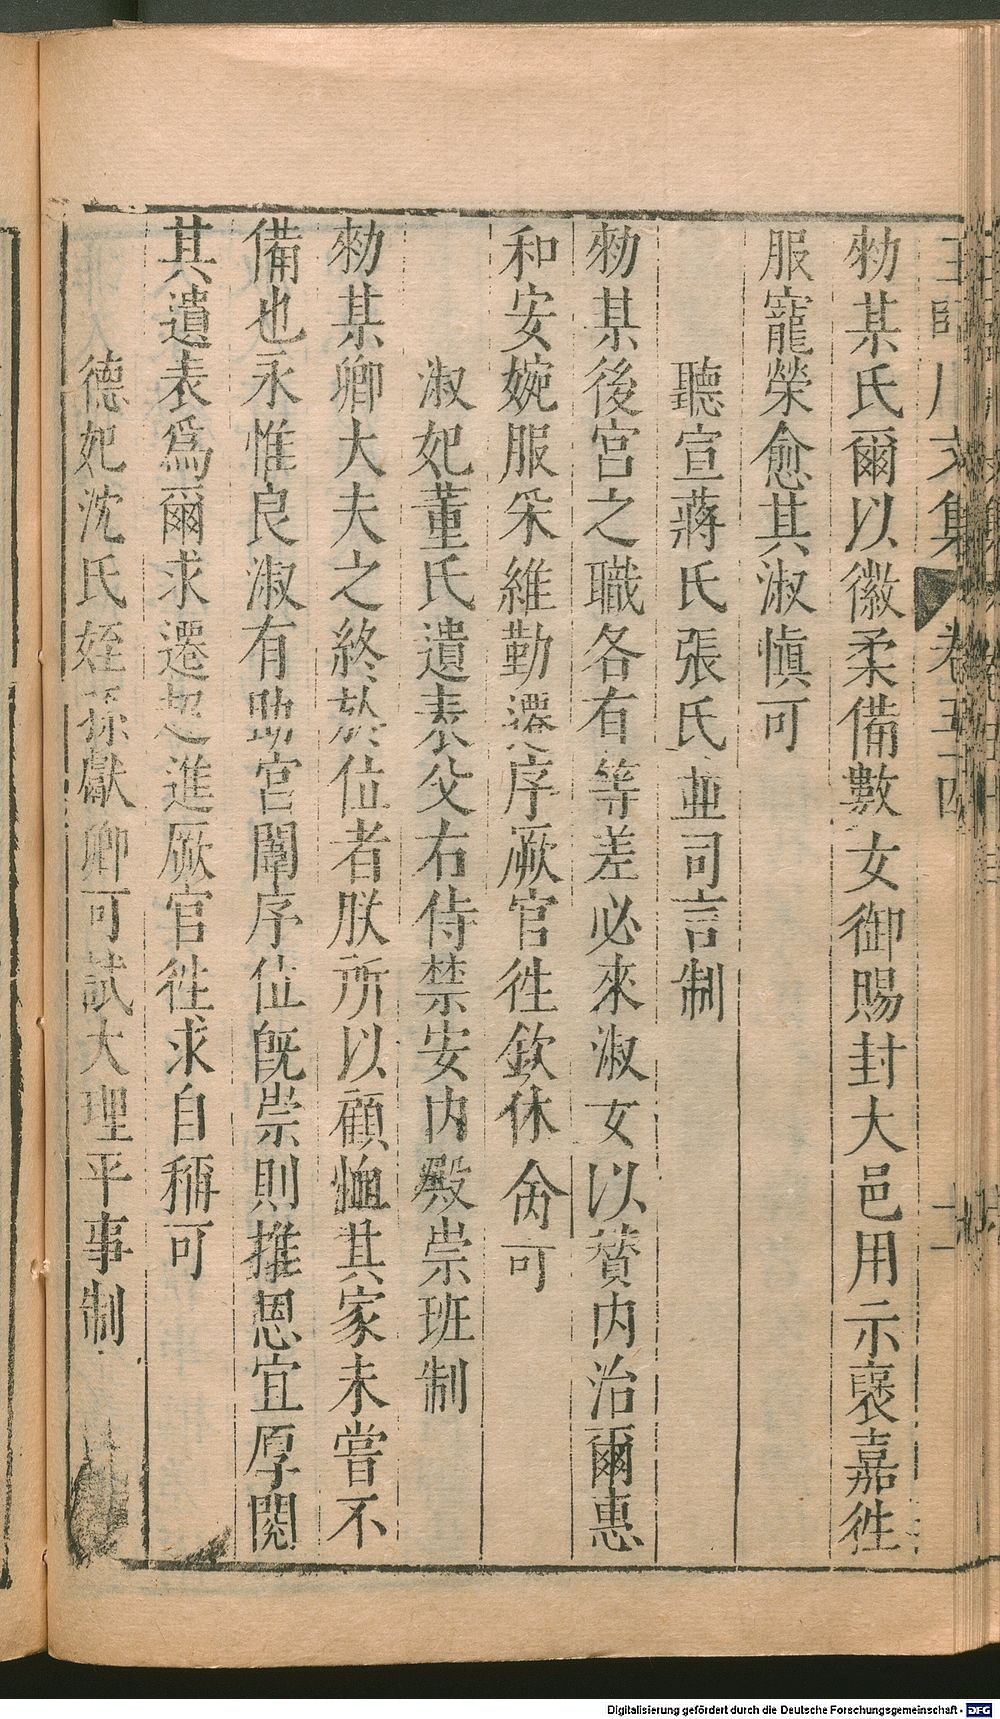 勑某氏爾以徽柔備數女御賜封大邑用示襃嘉徃
服寵榮愈其淑愼可
聽宣蔣氏張氏並司言制
勑某後宮之職各有等差必來淑女以贊内治爾惠
和安婉服采維勤遷序厥官徃欽休命可
淑妃董氏遺表父右侍禁安内殿崇班制
勑某卿大夫之終於位者朕所以顧恤其家未嘗不
備也永惟良淑有助宮闈序位旣崇則推恩宜厚閱
其遺表爲爾求遷超進厥官徃求自稱可
德妃沈氏姪孫獻卿可試大理平事制
Digitalisierung gefördert durch die Deutsche Forschungsgemeinschaft - DFG